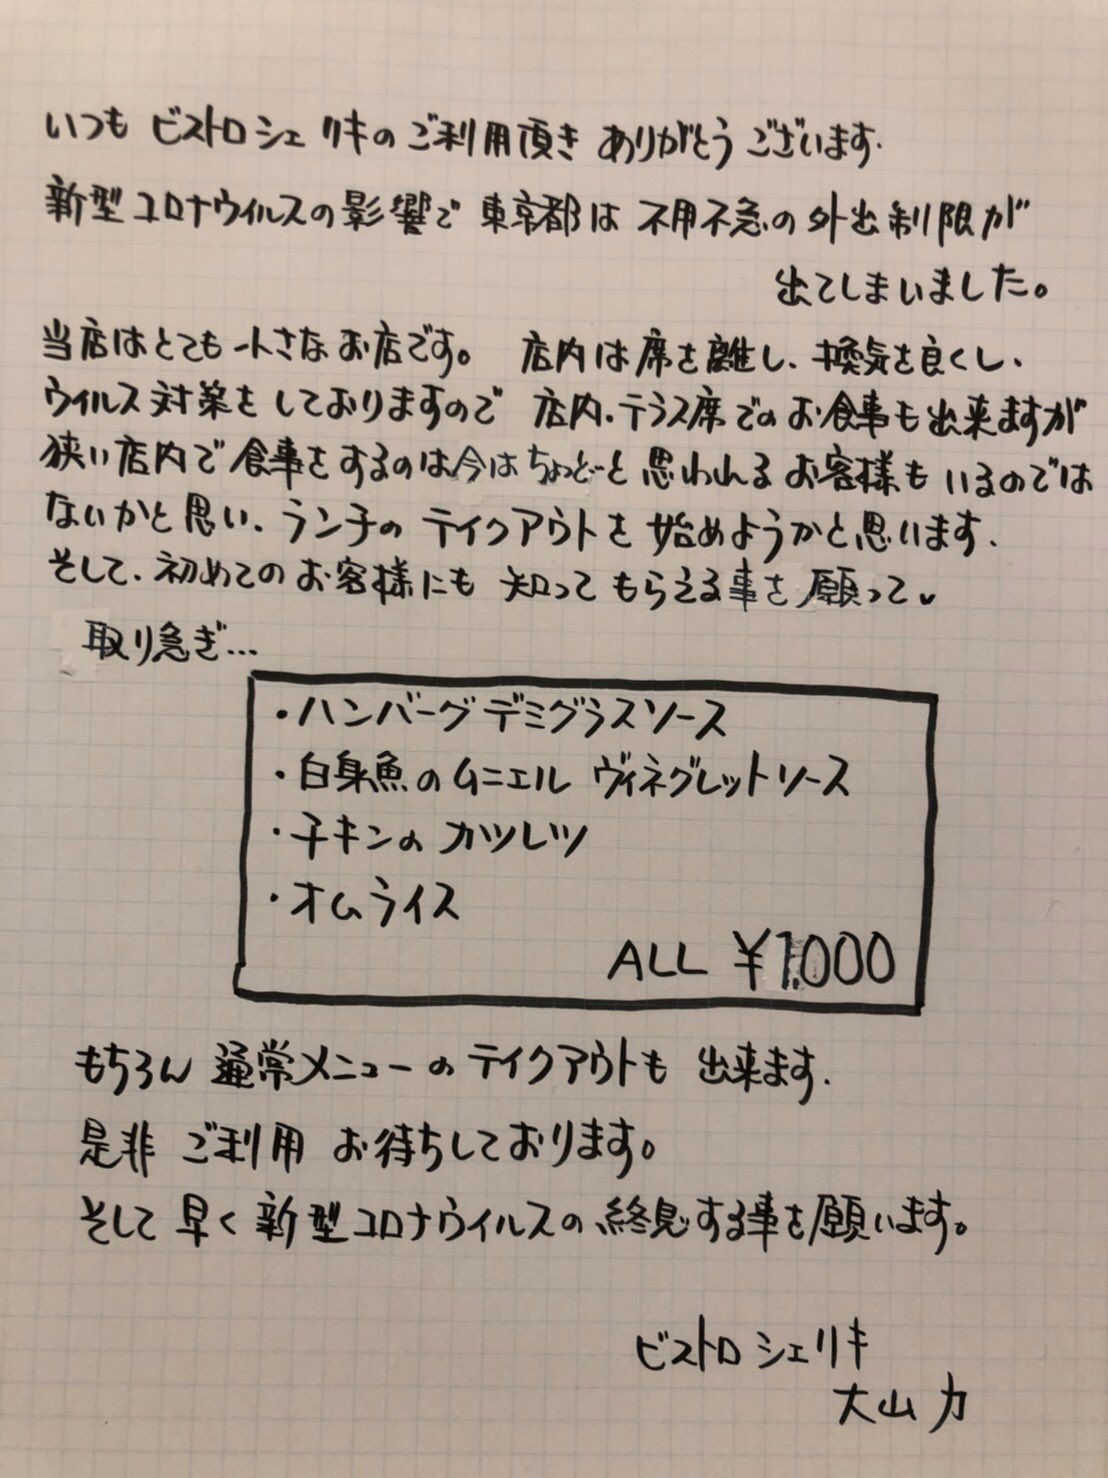 いつも ビストロシェリキのご利用頂き ありがとうございます.
新型コロナウイルスの影響で 東京都は 不用不急の外出制限が
出てしまいました。
当店はとても小さなお店です。 店内は席を離し、換気を良くし、
ウイルス対策をしておりますので 店内・テラス席でのお食事も出来ますが
狭い店内で食事をするのは今はちょっど…と思われるお客様もいるのでは
ないかと思い、ランチのテイクアウトを始めようかと思います.
そして、初めてのお客様にも 知ってもらえる事を願って、
取り急ぎ…
・ハンバーグデミグラスソース
・白身魚のムニエル ヴィネグレットソース
・チキンのカツレツ
・オムライス
ALL ¥1,000
もちろん 通常メニューのテイクアウトも 出来ます.
是非 ご利用 お待ちしております。
そして早く新型コロナウイルスの終息する事を願います。
ビストロ シェリキ
大山 力